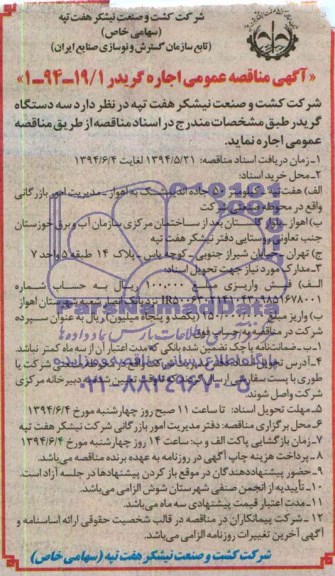 شرکت کشت و صنعت نیشکر هفت تپه
(سهامی خاص)
(تابع سازمان گسترش و نوسازی صنایع ایران)
«آگهی مناقصه عمومی اجاره گریدر ۱۹/۱-۹۴-۱»
شرکت کشت و صنعت نیشکر هفت تپه در نظر دارد سه دستگاه
گریدر طبق مشخصات مندرج در اسناد مناقصه از طریق مناقصه
عمومی اجاره نماید.
۱- زمان دریافت اسناد مناقصه: ۱۳۹۴/۵/۲۱ لغایت ۱۳۹۴/۶/۴
۲- محل خرید اسناد:
الف) هفت تپه جاده اندیمشک به اهواز - مدیریت امور بازرگانی
واقع در محوطه شرکت
ب) اهواز بعد از ساختمان مرکزی سازمان آب و برق خوزستان
جنب تعاونی روستایی دفتر نیشکر هفت تپه
ج) تهران - خیابان شیراز جنوبی - کوچه یاس - پلاک ۱۴ طبقه ۵ واحد ۷
۳- مدارک مورد نیاز جهت تحویل اسناد:
الف) فیش واریزی مبلغ ۱۰۰.۰۰۰ ریال به حساب شماره
نزد بانک شعبه اهواز
ب) واریز مبلغ (یکصد و پنجاه میلیون) ریال به عنوان سپرده
شرکت در مناقصه به حساب فوق
یا ضمانتنامه یا چک تضمین شده بانکی که مدت اعتبار آن از سه ماه کمتر نباشد.
۴- آدرس تحویل
طوری با پست سفارشی ارسال تا وقت تعیین شده به دبیرخانه مرکزی
شرکت واصل شوند.
۵- مهلت تحویل اسناد: تا ساعت ۱۱ صبح روز چهارشنبه مورخ ۱۳۹۴/۶/۴
۶- محل برگزاری مناقصه: دفتر مدیریت امور بازرگانی شرکت نیشکر هفت تپه
۷- زمان بازگشایی پاکت الف و ب: ساعت ۱۴ روز چهارشنبه مورخ ۱۳۹۴/۶/۴
۸- پرداخت هزینه چاپ آگهی در روزنامه به عهده برنده مناقصه می‌باشد.
۹- حضور پیشنهاددهندگان در موقع باز کردن پیشنهادها در جلسه آزاد است.
۱۰- تأییدیه از انجمن صنفی شهرستان شوش الزامی می‌باشد.
۱۱- مدت اعتبار قیمت پیشنهادی سه ماه می‌باشد.
۱۲- شرکت پیمانکاران در مناقصه در قالب شخصیت حقوقی ارائه اساسنامه و
آگهی آخرین تغییرات روزنامه الزامی می‌باشد.
شرکت کشت و صنعت نیشکر هفت تپه (سهامی خاص)
ParsNamadData
۰۲۱-۸۸۳۴۹۶۷۰-۵